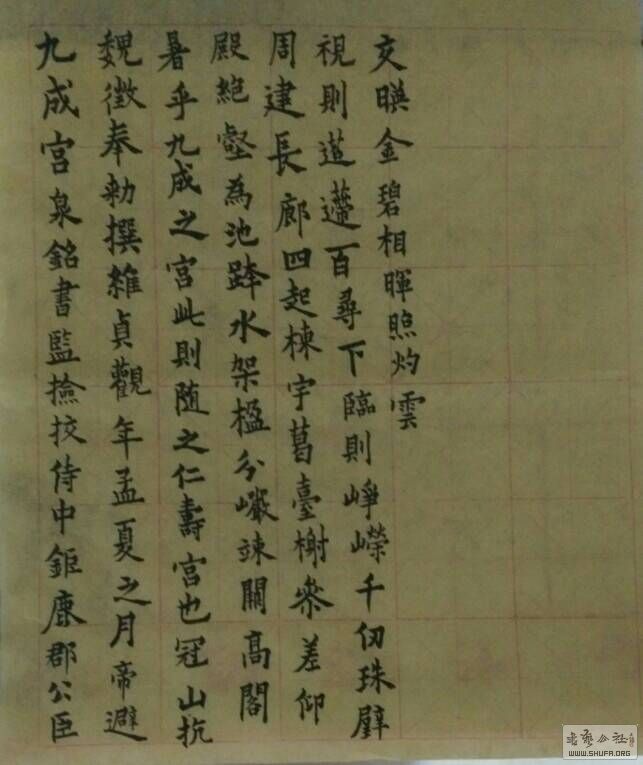 九成宮泉銘書監撿挍侍中鉅鹿郡公臣
魏徵奉勅撰維貞觀年孟夏之月帝避
暑乎九成之宮此則随之仁壽宮也冠山抗
殿絶壑為池跨水架楹分巗竦闕高閣
周建長廊四起棟宇葛臺榭參差仰
視則迢遰百尋下臨則崢嶸千仞珠璧
交暎金碧相暉照灼雲
书艺公社
WWW.SHUFA.ORG